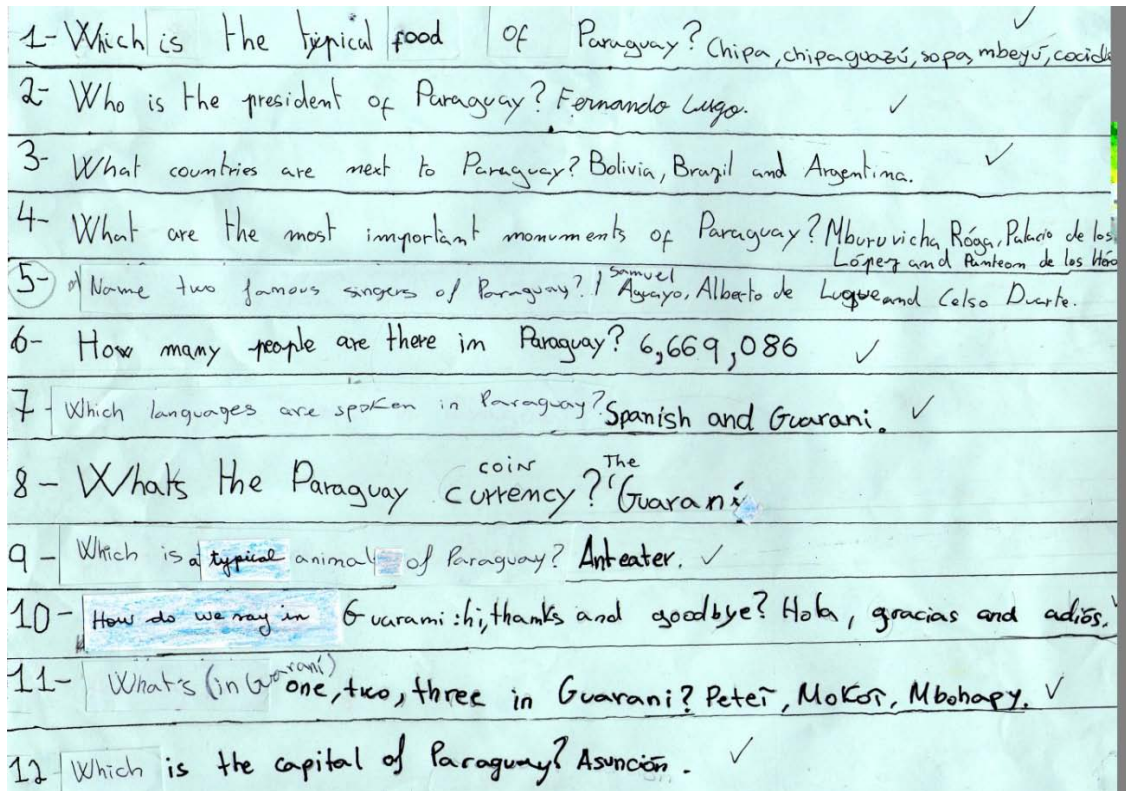 1- Which is the typical food of Paraguay? Chipa, chipaguazú, sopa, mbeyú, cocido
2- Who is the president of Paraguay? Fernando Lugo. ✓
3- What countries are next to Paraguay? Bolivia, Brazil and Argentina. ✓
4- What are the most important monuments of Paraguay? Mburuvicha Róga, Palacio de los
López and Panteon de los Héro
5- Name two famous singers of Paraguay? Samuel Aguayo, Alberto de Luque and Celso Duarte.
6- How many people are there in Paraguay? 6,669,086 ✓
7- Which languages are spoken in Paraguay? Spanish and Guarani. ✓
8- What's the Paraguay coin currency? The Guaraní
9- Which is a typical animal of Paraguay? Anteater. ✓
10- How do we say in Guarani: hi, thanks and goodbye? Hola, gracias and adiós. ✓
11- What's (in Guaraní) one, two, three in Guarani? Peteĩ, Mokoĩ, Mbohapy. ✓
12 Which is the capital of Paraguay? Asunción. ✓